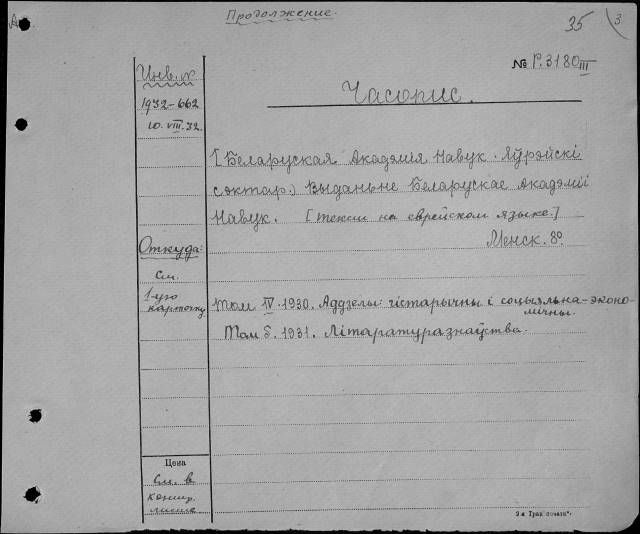 Продолжение.
35
3
№ Р.3180 III
Инв. №
1932-662
10.VIII.32.
Часопис.
[Беларуская Акадэмія Навук. Яўрэйскі
сэктар.] Выданьне Беларускае Акадэміі
Навук. [текст на еврейском языке.]
Менск. 8º.
Откуда:
см.
1-ую
карточку
Том IV. 1930. Аддзелы: гістарычны і соцыяльна-эконо-
мічны.
Том 5. 1931. Літаратуразнаўства.
Цена
см. в
листе